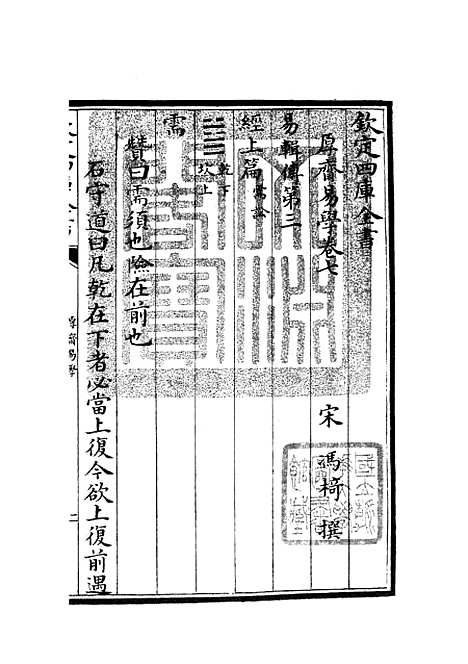 欽定四庫全書
厚齋易學卷七 宋 馮椅 撰
易輯傳第三
經上篇
䷄ 乾下坎上
需
贊曰需須也險在前也
石守道曰凡乾在下者必當上復今欲上復前遇
厚齋易學